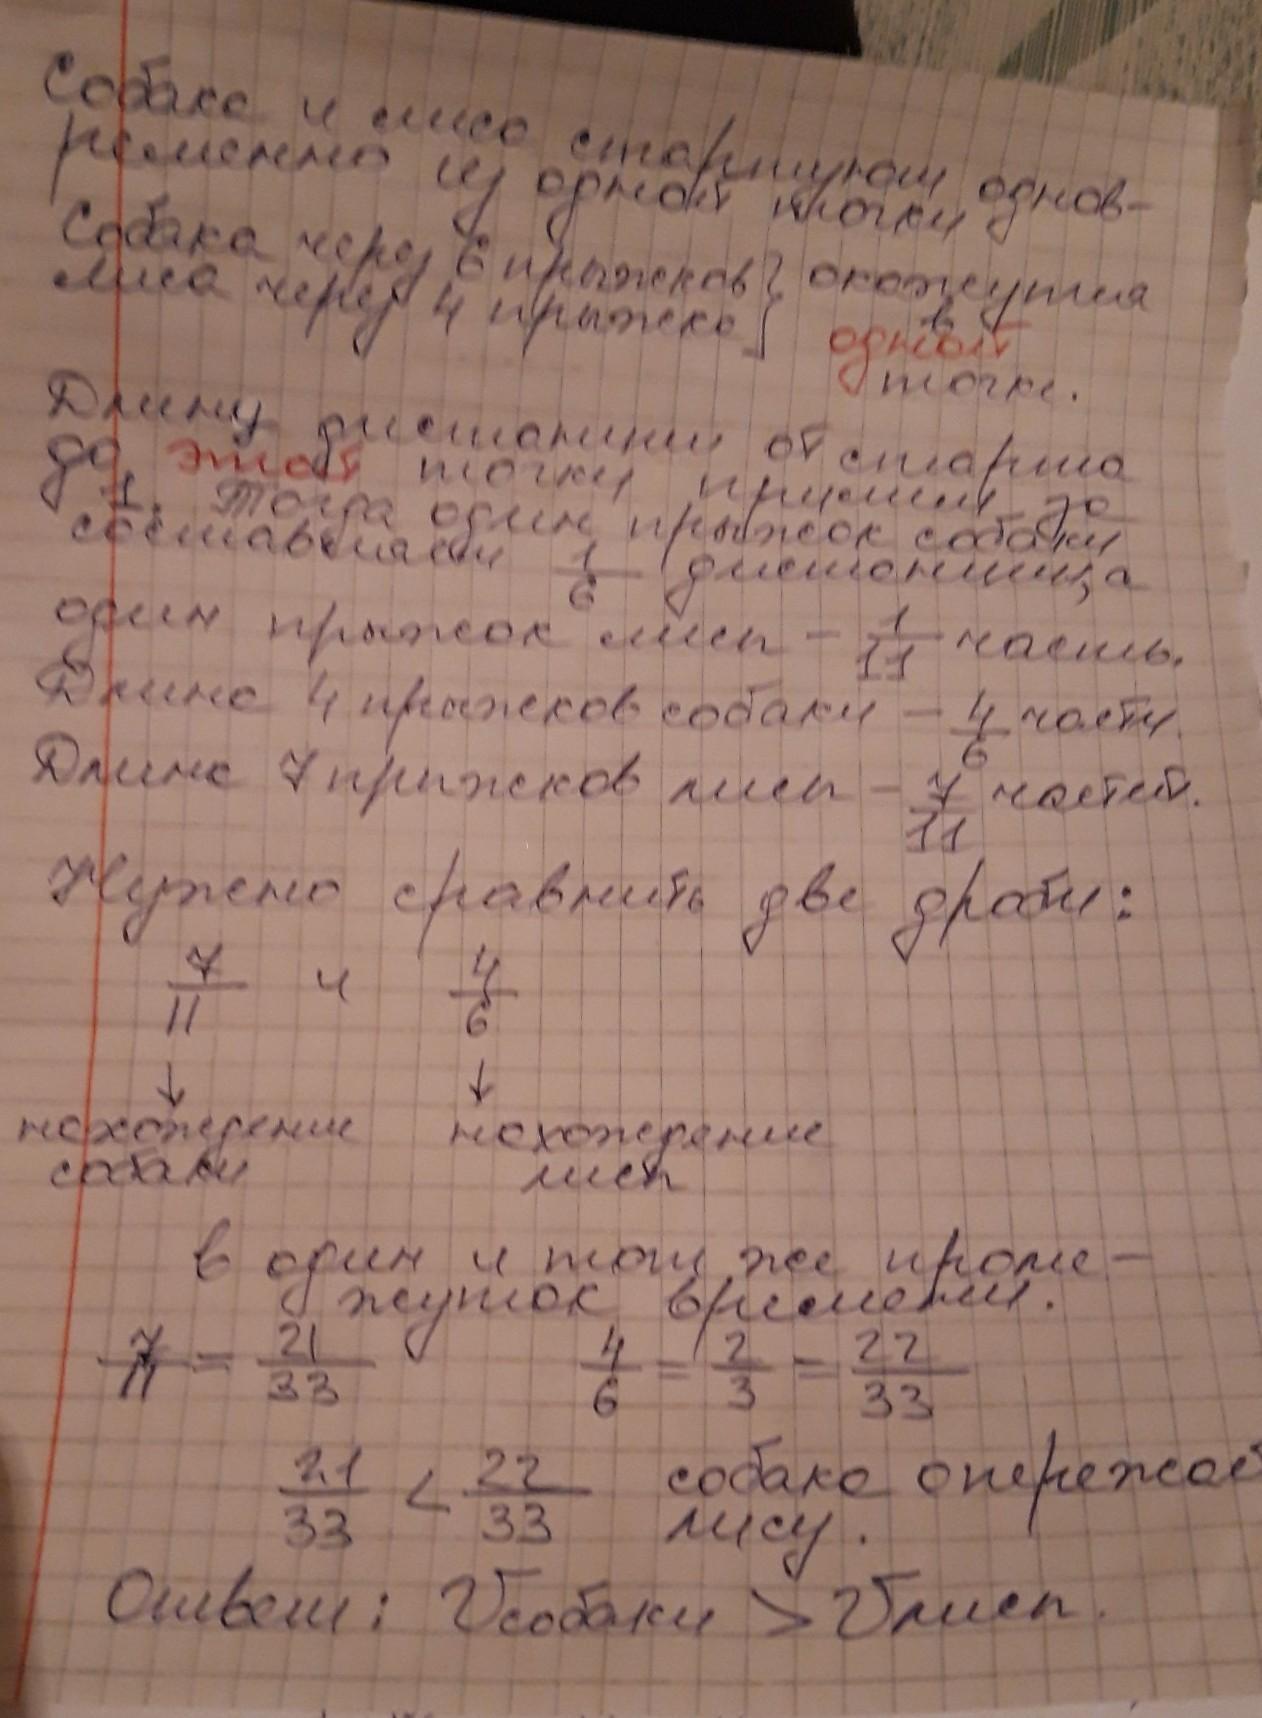 Собака и лиса стартуют однов-
ременно из одной точки
Собака через 6 прыжков } окажутся
лиса через 4 прыжка } в
одной
точке.
Длину дистанции от старта
до этой точки примем за
1. Тогда один прыжок собаки
составляет 1/6 дистанции, а
один прыжок лисы – 1/11 часть.
Длина 4 прыжков собаки – 4/6 части.
Длина 7 прыжков лисы – 7/11 частей.
Нужно сравнить две дроби:
7/11 и 4/6
↓ ↓
нахождение нахождение
собаки лисы
в один и тот же проме-
жуток времени.
7/11 = 21/33 4/6 = 2/3 = 22/33
21/33 < 22/33 собака опережает
лису.
Ответ: Vсобаки > Vлисы.